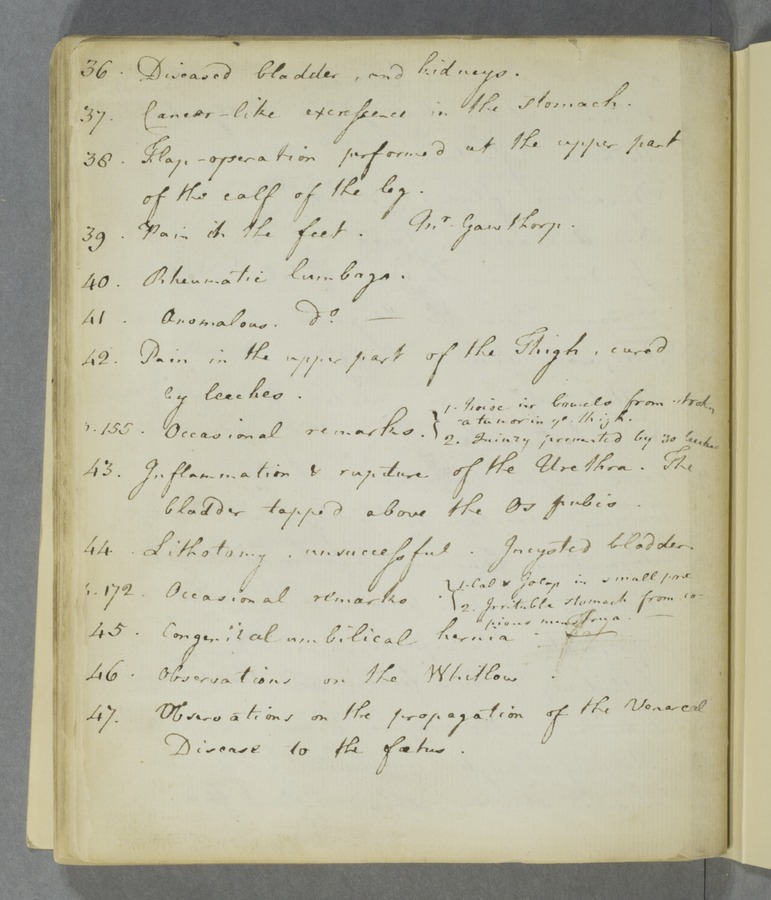 36. Diseased bladder, and kidneys.
37. Cancer-like excrescence in the stomach.
38. Flap-operation performed at the upper part
of the calf of the leg.
39. Pain in the feet. Mr. Gawthorp.
40. Rheumatic lumbago.
41. Anomalous. Do. —
42. Pain in the upper part of the Thigh, cured
by leeches.
p.155. Occasional remarks. { 1. Noise in bowels from
a tumor in ye. thigh.
2. Quinzy prevented by 30 leeches
43. Inflammation & rupture of the Urethra. The
bladder tapped above the Os pubis.
44. Lithotomy, unsuccessful. Incysted bladder.
p.172. Occasional remarks { 1. Cal & Jalap in small pox
2. Irritable stomach from co-
pious menstrua. —
45. Congenital umbilical hernia.
46. Observations on the Whitlow.
47. Observations on the propagation of the Venereal
Disease to the fœtus.